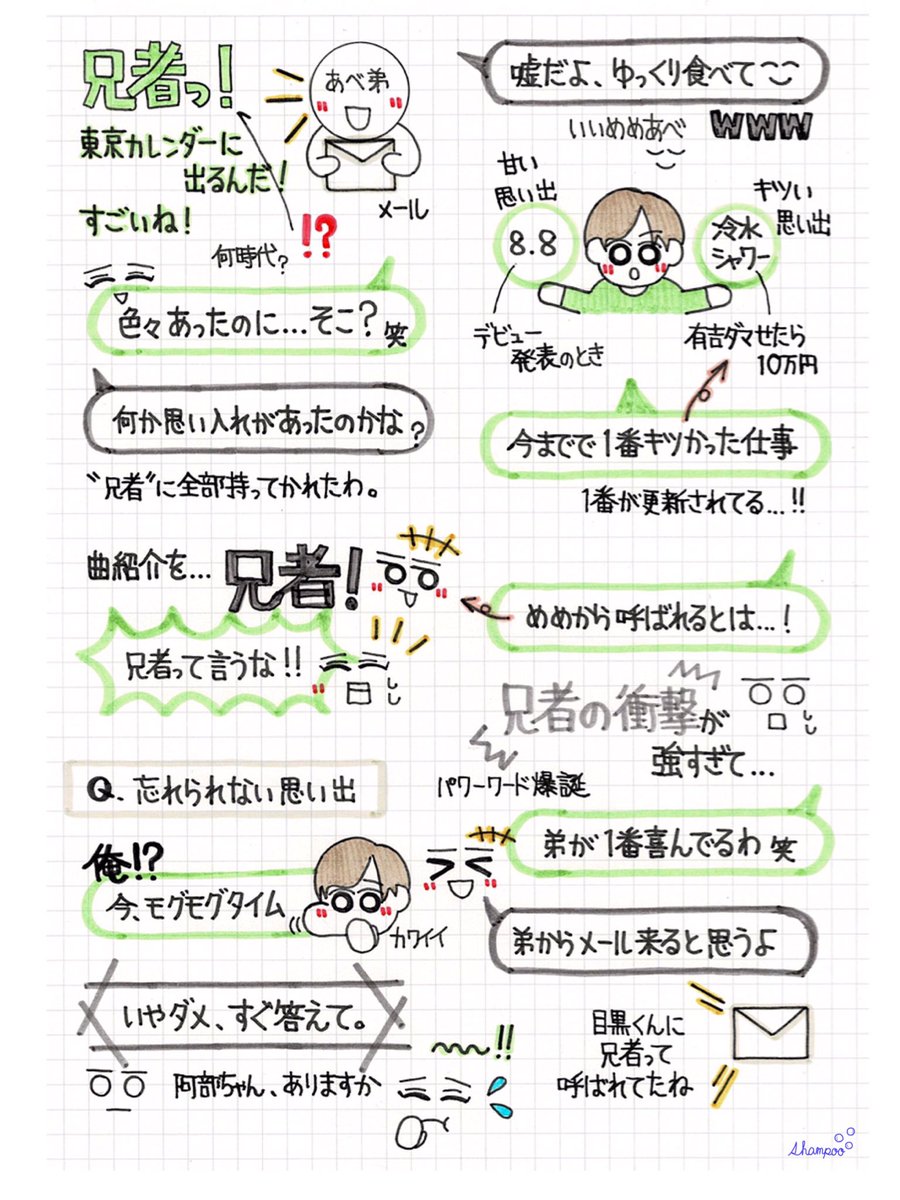 兄者っ!
あべ弟
東京カレンダーに
出るんだ!
すごいね!
メール
何時代?
!?
色々あったのに…そこ?笑
何か思い入れがあったのかな?
"兄者"に全部持ってかれたわ。
曲紹介を…
兄者!
兄者って言うな!!
Q.忘れられない思い出
俺!?
今、モグモグタイム
カワイイ
いやダメ、すぐ答えて。
阿部ちゃん、ありますか
!!
嘘だよ、ゆっくり食べて
いいめめあべ
www
甘い
思い出
8.8
デビュー
発表のとき
キツい
思い出
冷水
シャワー
有吉ダマせたら
10万円
今までで1番キツかった仕事
1番が更新されてる…!!
めめから呼ばれるとは…!
兄者の衝撃が
強すぎて…
パワーワード爆誕
弟が1番喜んでるわ 笑
弟からメール来ると思うよ
目黒くんに
兄者って
呼ばれてたね
Shampoo